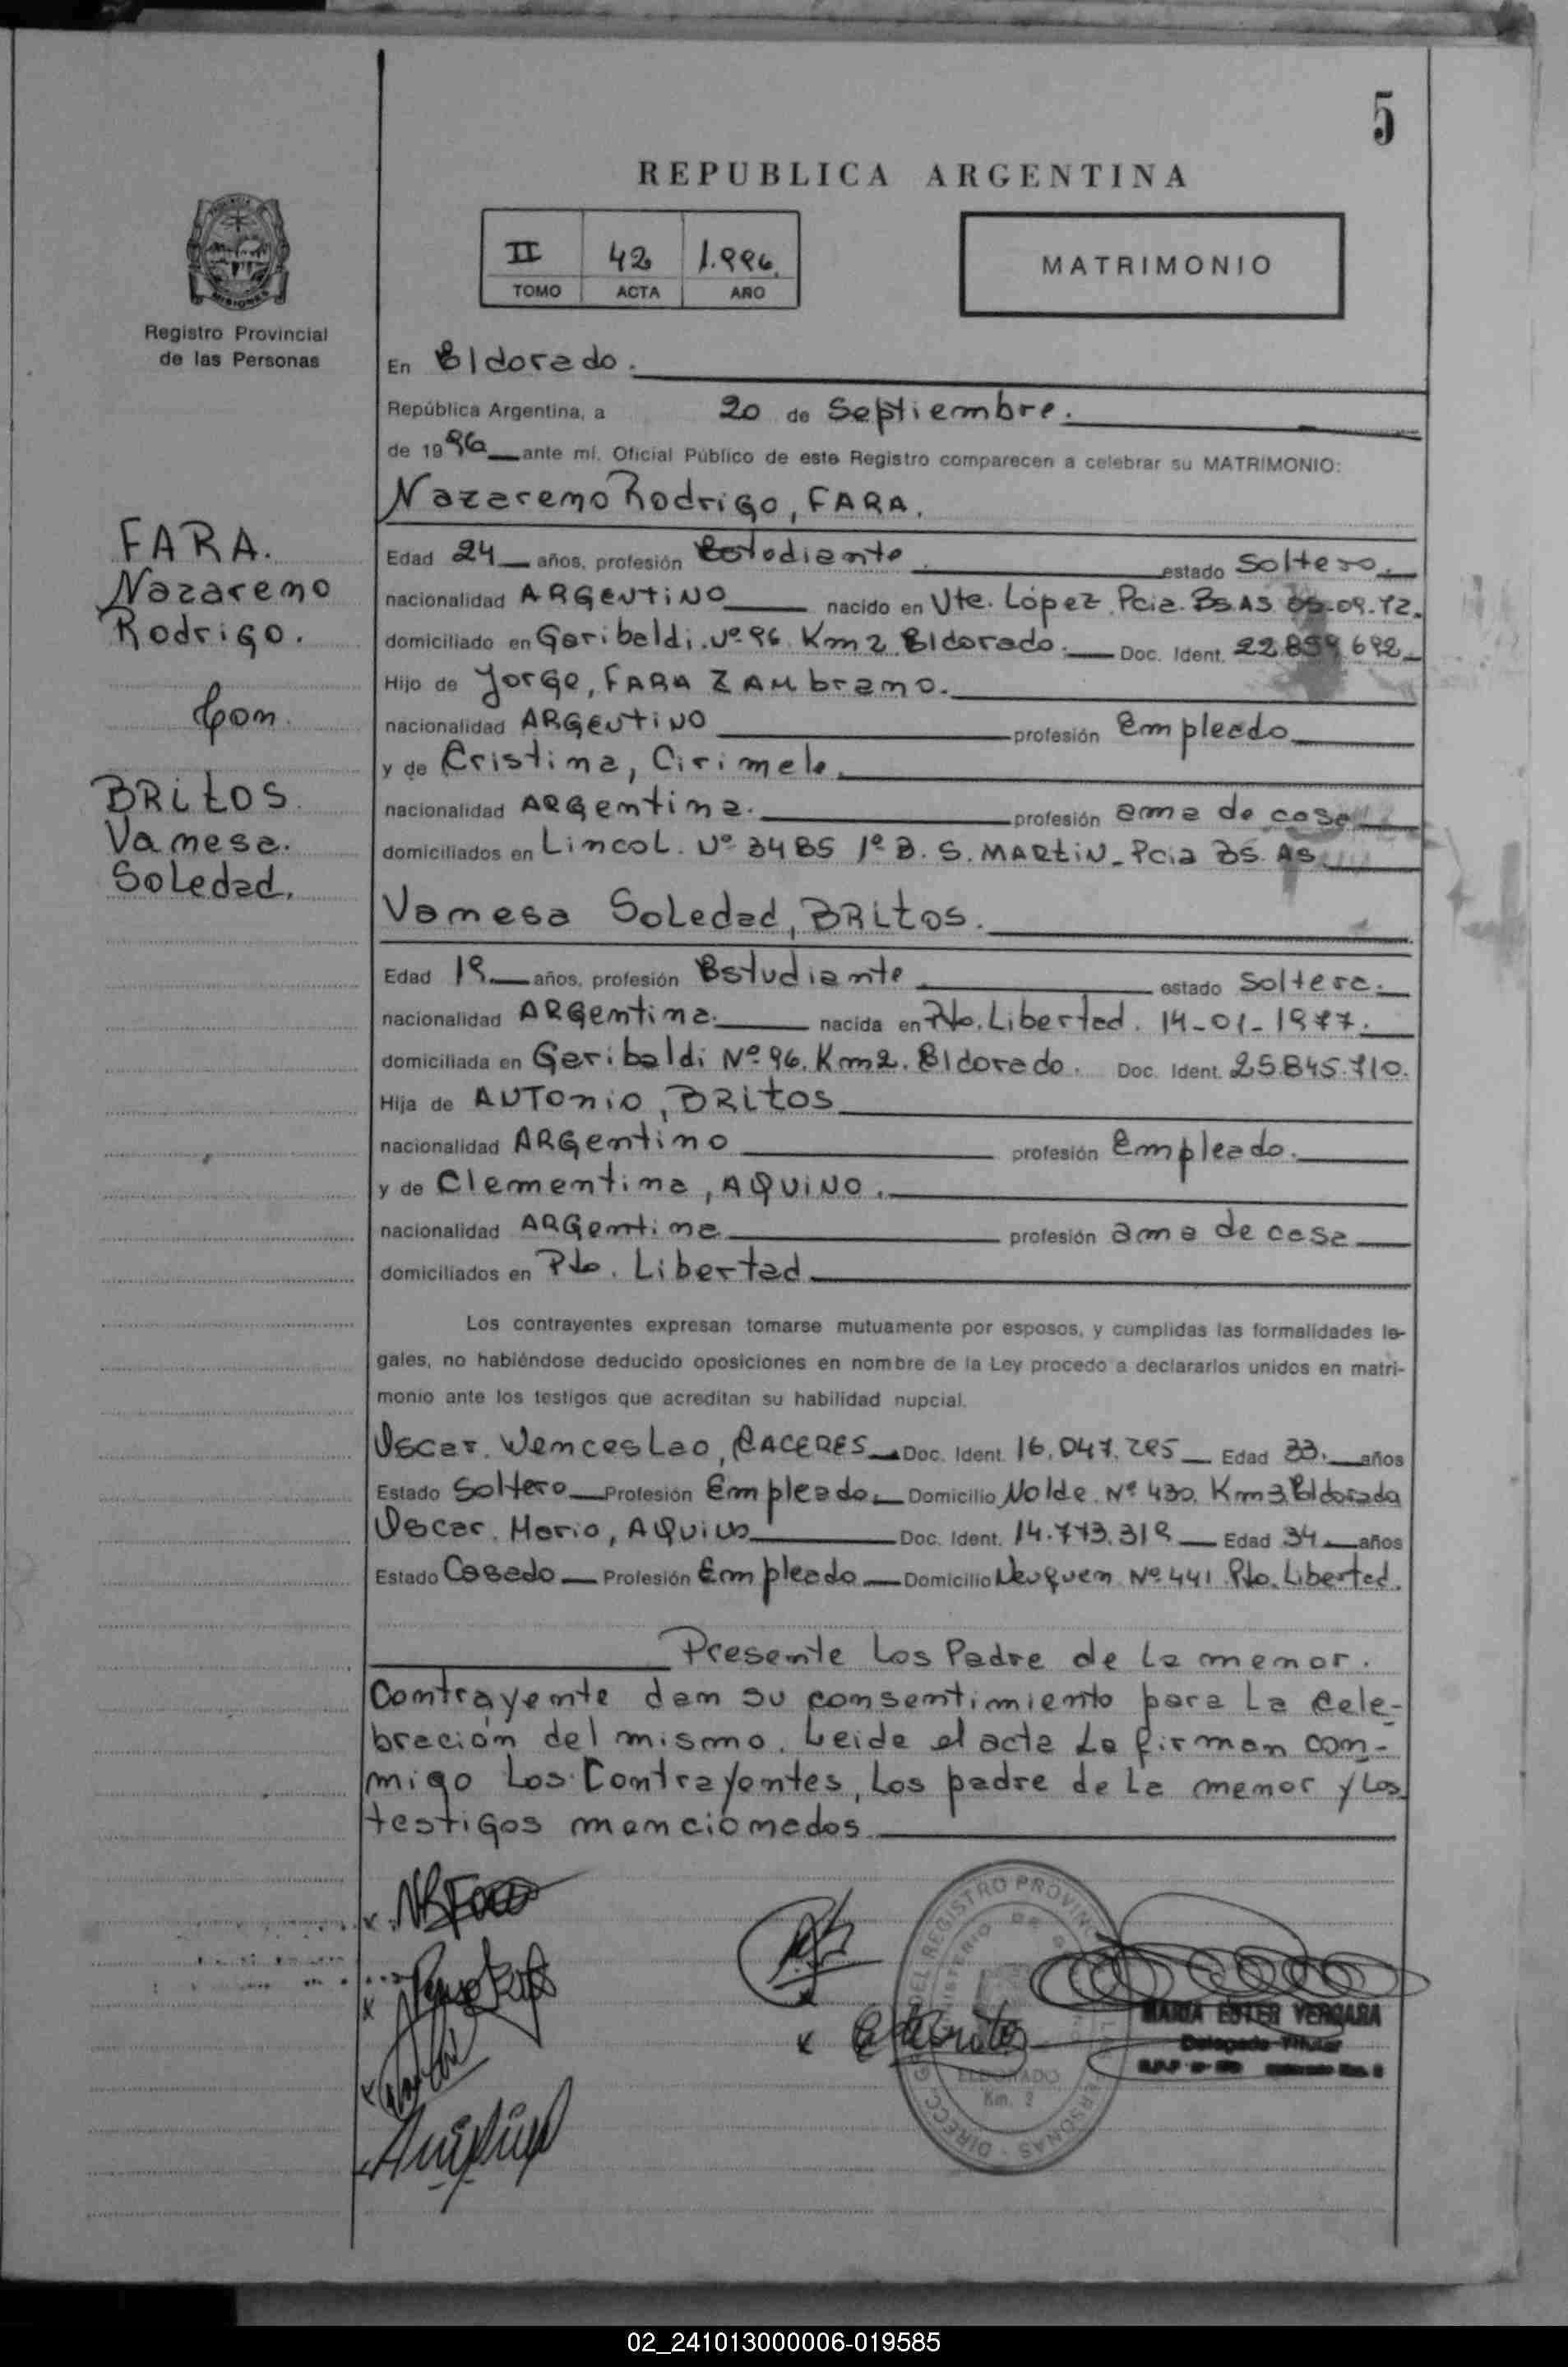 5
REPUBLICA ARGENTINA
II 42 1.996.
TOMO ACTA AÑO
MATRIMONIO
MISIONES
Registro Provincial
de las Personas
En Eldorado.
República Argentina, a 20 de Septiembre.
de 1996 ante mí, Oficial Público de este Registro comparecen a celebrar su MATRIMONIO:
Nazareno Rodrigo, FARA.
FARA.
Nazareno
Rodrigo.
Con.
BRITOS.
Vanesa.
Soledad.
Edad 24 años, profesión Estudiante. estado Soltero.
nacionalidad ARGENTINO nacido en Vte. López. Pcia. Bs.AS. 05-09-72.
domiciliado en Garibaldi. Nº 96. Km 2. Eldorado. Doc. Ident. 22.859.692
Hijo de Jorge, FARA ZAMbrano.
nacionalidad ARGENTINO profesión Empleado
y de Cristina, Cirimele.
nacionalidad ARGentina. profesión ama de casa
domiciliados en LincoL. Nº 3485 1º B. S. MARTIN. Pcia BS. AS.
Vanesa Soledad, BRITOS.
Edad 19 años, profesión Estudiante estado Soltera.
nacionalidad ARGentina. nacida en Pto. Libertad. 14-01-1977.
domiciliada en Garibaldi Nº 96. Km2. Eldorado. Doc. Ident. 25.845.710.
Hija de ANTonio, BRITOS
nacionalidad ARGentino profesión Empleado.
y de Clementina, AQUINO.
nacionalidad ARGentina profesión ama de casa
domiciliados en Pto. Libertad
Los contrayentes expresan tomarse mutuamente por esposos, y cumplidas las formalidades le-
gales, no habiéndose deducido oposiciones en nombre de la Ley procedo a declararlos unidos en matri-
monio ante los testigos que acreditan su habilidad nupcial.
Oscar. Wenceslao, CACERES Doc. Ident. 16.047.295 Edad 33. años
Estado Soltero Profesión Empleado Domicilio Nolde. Nº 430. Km3. Eldorado
Oscar. Mario, AQUINO Doc. Ident. 14.773.319 Edad 34 años
Estado Casado Profesión Empleado Domicilio Neuquen. Nº 441. Pto. Libertad.
Presente Los Padre de La menor.
Contrayente dan su consentimiento para La cele-
bración del mismo. Leida el acta La firman con-
migo Los Contrayentes, Los padre de La menor y Los
testigos mencionados
MARIA ESTER VERGARA
Delegada Titular
ELDORADO
Km. 2
02_241013000006-019585